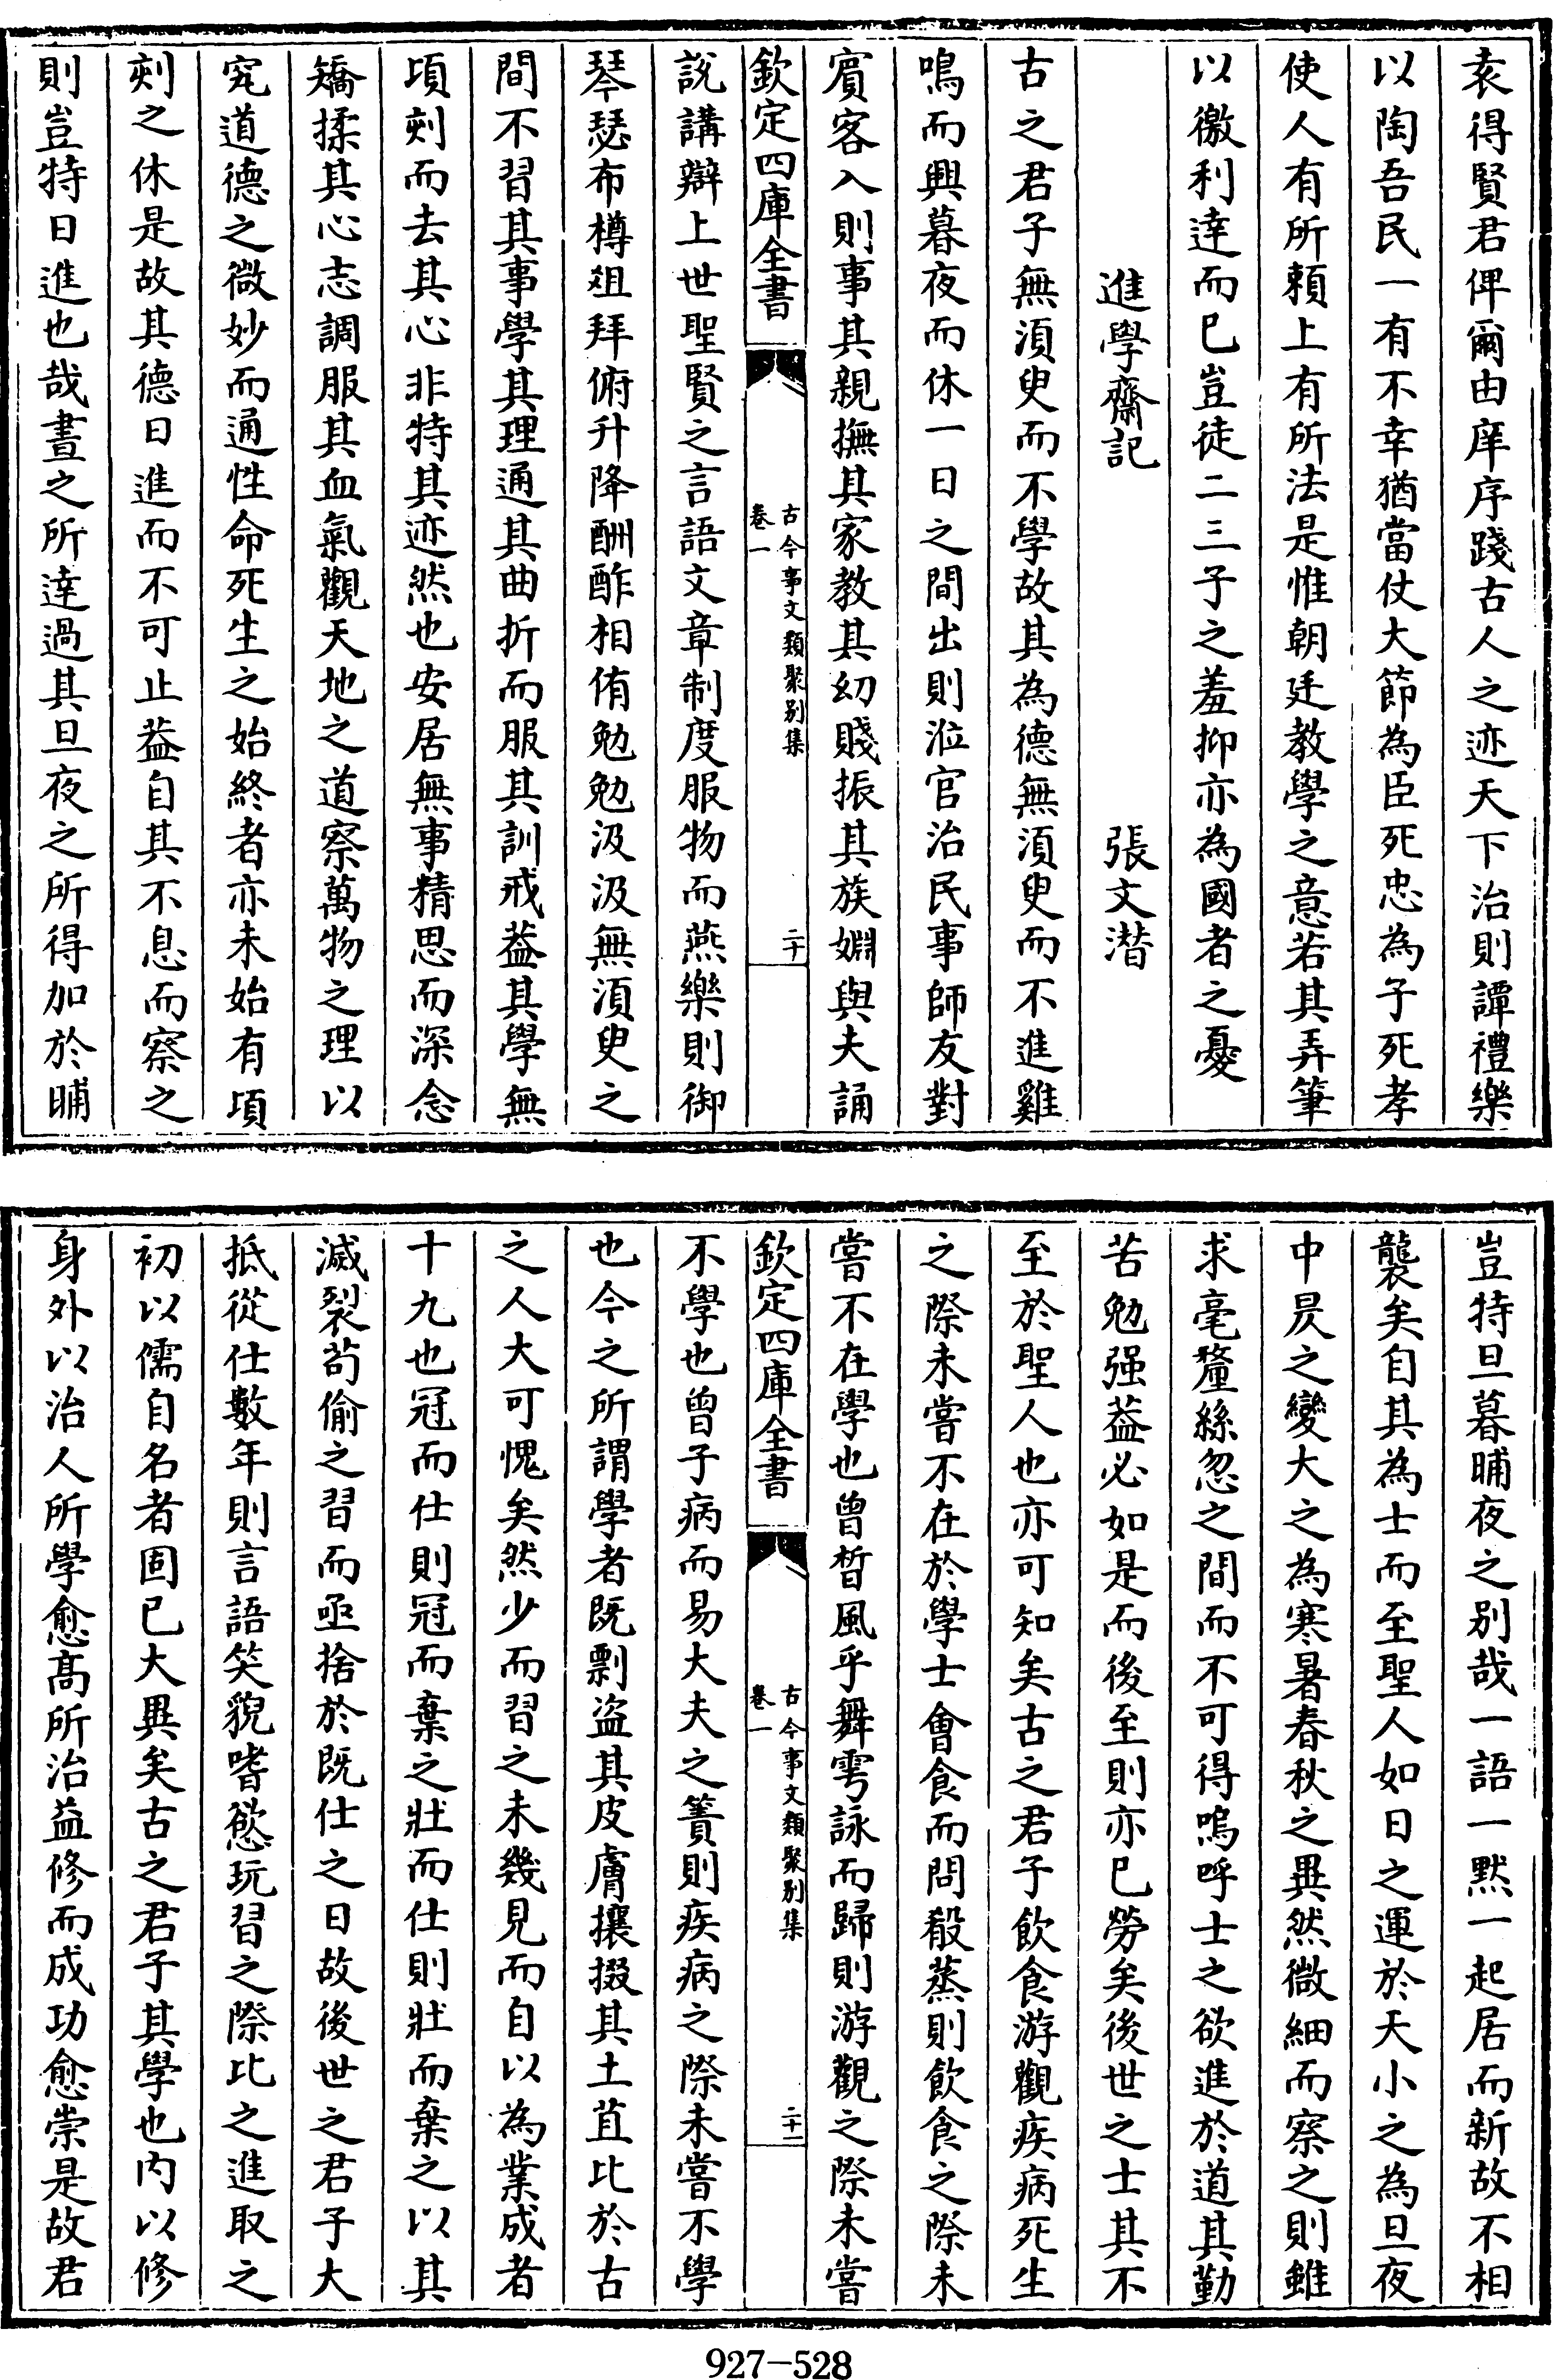 袁得賢君俾爾由庠序踐古人之迹天下治則譚禮樂
以陶吾民一有不幸猶當仗大節為臣死忠為子死孝
使人有所賴上有所法是惟朝廷教學之意若其弄筆
以徼利達而已豈徒二三子之羞抑亦為國者之憂
進學齋記 張文潜
古之君子無須臾而不學故其為德無須臾而不進雞
鳴而興暮夜而休一日之間出則涖官治民事師友對
賓客入則事其親撫其家教其幼賤振其族婣與夫誦
欽定四庫全書 古今事文類聚別集 卷一 二十
說講辯上世聖賢之言語文章制度服物而燕樂則御
琴瑟布樽俎拜俯升降酬酢相侑勉勉汲汲無須臾之
間不習其事學其理通其曲折而服其訓戒葢其學無
頃刻而去其心非特其迹然也安居無事精思而深念
矯揉其心志調服其血氣觀天地之道察萬物之理以
究道德之微妙而通性命死生之始終者亦未始有頃
刻之休是故其德日進而不可止葢自其不息而察之
則豈特日進也哉晝之所達過其旦夜之所得加於晡
豈特旦暮晡夜之別哉一語一默一起居而新故不相
襲矣自其為士而至聖人如日之運於天小之為旦夜
中昃之變大之為寒暑春秋之異然微細而察之則雖
求毫釐絲忽之間而不可得嗚呼士之欲進於道其勤
苦勉强葢必如是而後至則亦已勞矣後世之士其不
至於聖人也亦可知矣古之君子飲食游觀疾病死生
之際未嘗不在於學士會食而問殽蒸則飲食之際未
嘗不在學也曾晳風乎舞雩詠而歸則游觀之際未嘗
欽定四庫全書 古今事文類聚別集 卷一 二十一
不學也曾子病而易大夫之簀則疾病之際未嘗不學
也今之所謂學者既剽盗其皮膚攘掇其土苴比於古
之人大可愧矣然少而習之未幾見而自以為業成者
十九也冠而仕則冠而棄之壯而仕則壯而棄之以其
滅裂茍偷之習而亟捨於既仕之日故後世之君子大
抵從仕數年則言語笑貌嗜慾玩習之際比之進取之
初以儒自名者固已大異矣古之君子其學也内以修
身外以治人所學愈髙所治益修而成功愈崇是故君
927-528